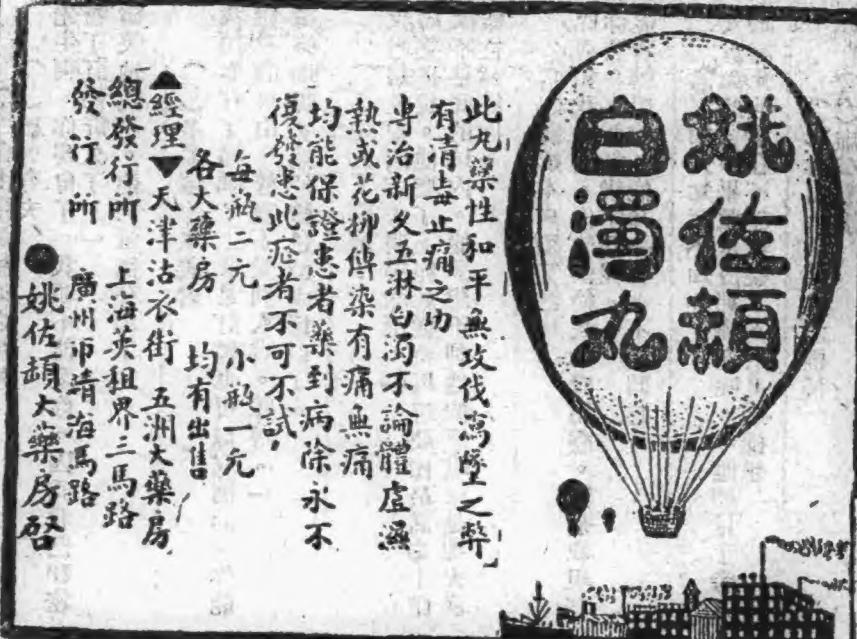 姚佐頔
白濁丸
此丸藥性和平無攻伐瀉墜之弊
有清毒止痛之功
專治新久五淋白濁不論體虛濕
熱或花柳傳染有痛無痛
均能保證患者藥到病除永不
復發患此症者不可不試
每瓶二元 小瓶一元
各大藥房 均有出售
▲經理▼天津沽衣街 五洲大藥房
總發行所 上海英租界三馬路
發行所 廣州市靖海馬路
●姚佐頔大藥房啓